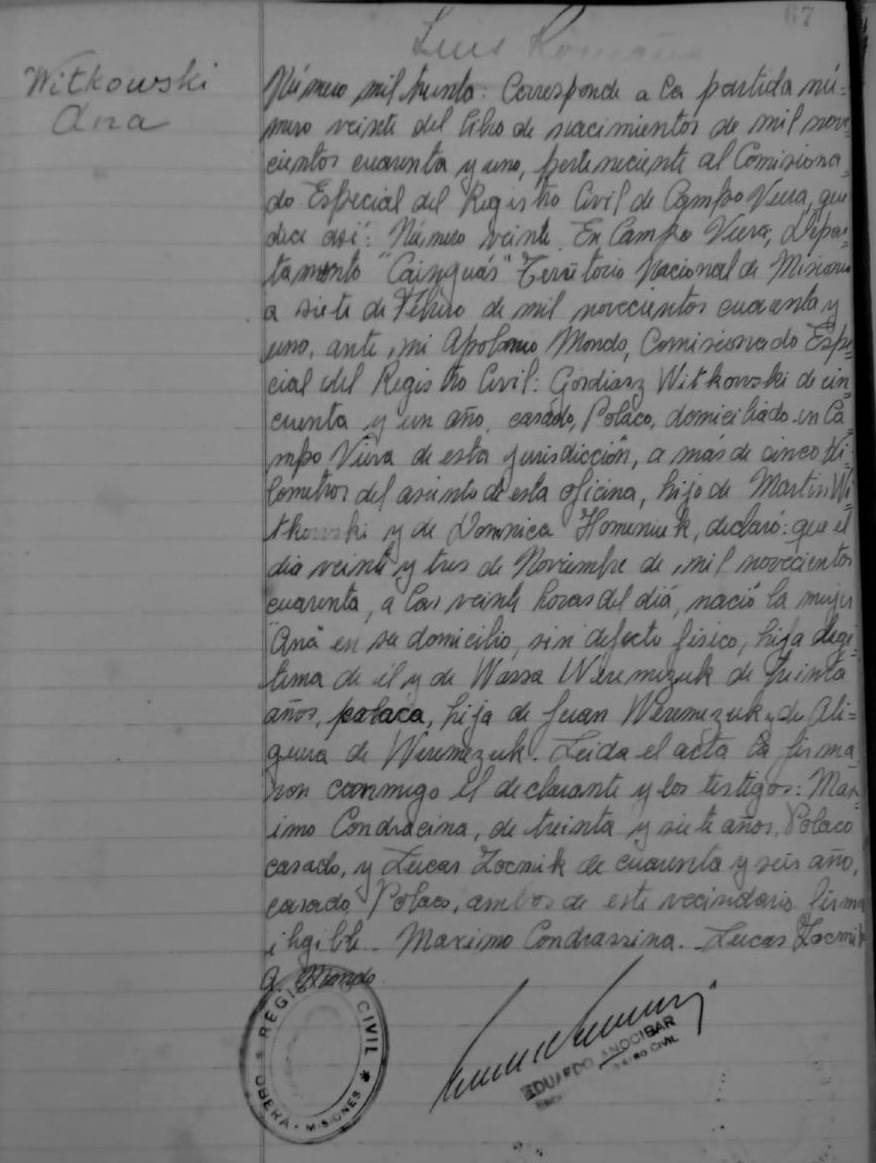 67
Luis Romaña
Witkowski
Ana
Número mil treinta: Corresponde a la partida nú=
mero veinte del libro de nacimientos de mil nove=
cientos cuarenta y uno, perteneciente al Comisiona=
do Especial del Registro Civil de Campo Viera, que
dice así: Número veinte. En Campo Viera, Depar=
tamento "Cainguás" Territorio Nacional de Misiones
a siete de Febrero de mil novecientos cuarenta y
uno, ante mi Apolonio Mondo, Comisionado Espe=
cial del Registro Civil: Gordiasz Witkowski de cin
cuenta y un año, casado, Polaco, domiciliado en Ca=
mpo Viera de esta jurisdicción, a más de cinco Ki=
lometros del asiento de esta oficina, hijo de Martin Wi=
tkowski y de Domnica Homeniuk, declaró: que el
día veinte y tres de Noviembre de mil novecientos
cuarenta, a las veinte horas del diá, nació la mujer
"Ana" en su domicilio, sin defecto físico, hija legi=
tima de él y de Wassa Weremezuk de treinta
años, polaca, hija de Juan Weremezuk y de Ali=
guera de Weremezuk. Leida el acta la firma
ron conmigo el declarante y los testigos: Max=
imo Condracina, de treinta y siete años, Polaco
casado, y Lucas Zocnik de cuarenta y seis año,
casado, Polaco, ambos de este vecindario. firma
ilegible. Maximo Condrassina. Lucas Zocnik
A. Mondo.
REGISTRO CIVIL
OBERA - MISIONES
EDUARDO ANOCIBAR
CIVIL